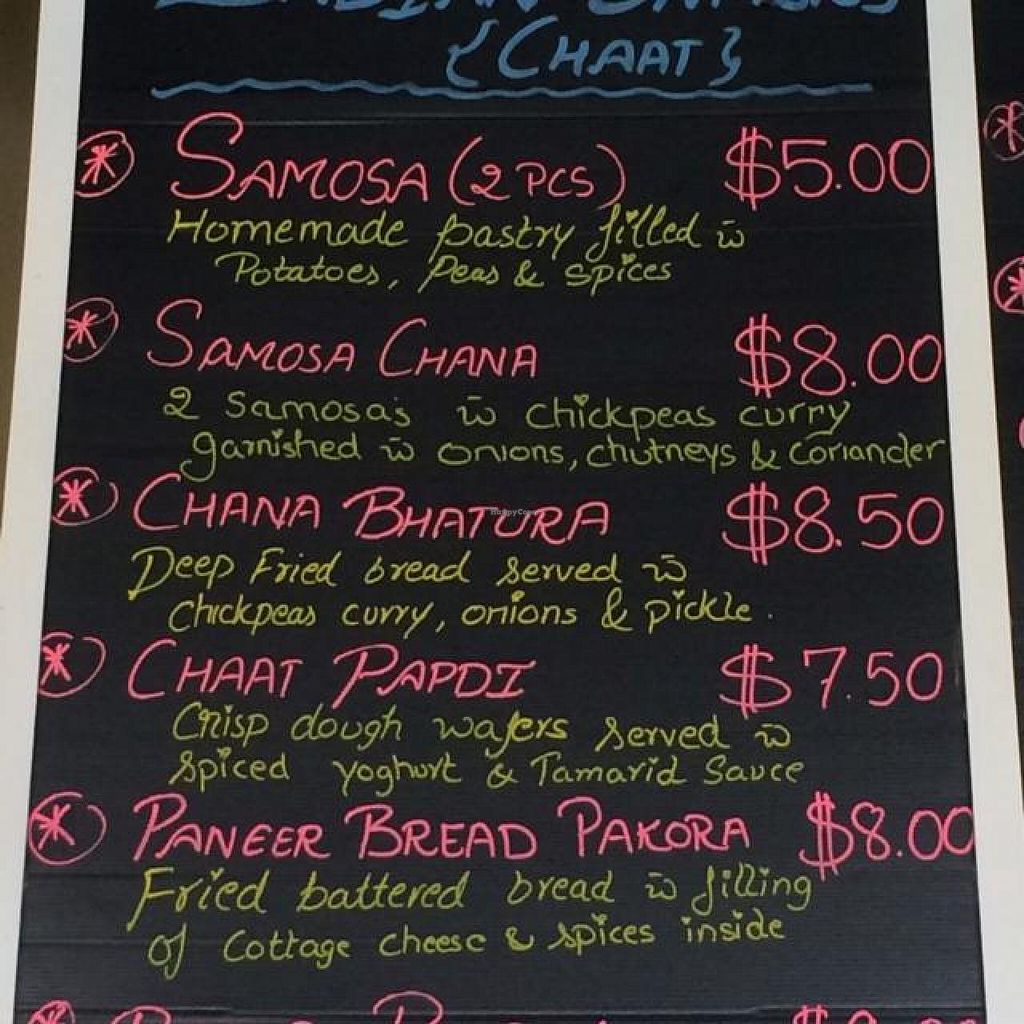 {CHAAT}
SAMOSA (2 PCS) $5.00
Homemade pastry filled w̄
Potatoes, Peas & spices
SAMOSA CHANA $8.00
2 Samosa's w̄ chickpeas curry
garnished w̄ onions, chutneys & coriander
CHANA BHATURA $8.50
Deep Fried bread served w̄
chickpeas curry, onions & pickle.
CHAAT PAPDI $7.50
Crisp dough wafers served w̄
spiced yoghurt & Tamarid Sauce
PANEER BREAD PAKORA $8.00
Fried battered bread w̄ filling
of cottage cheese & spices inside
HappyCow